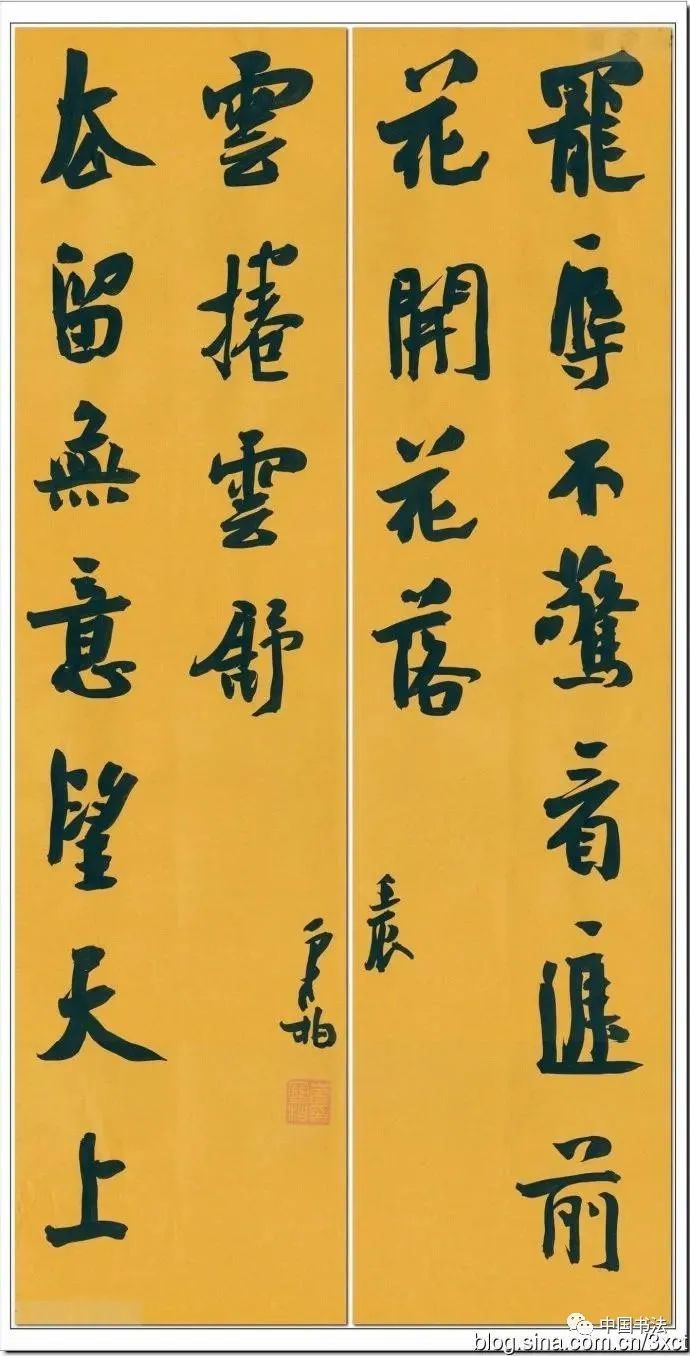 寵辱不驚看庭前
花開花落
壬辰
去留無意望天上
雲捲雲舒
中国书法
blog.sina.com.cn/3xct